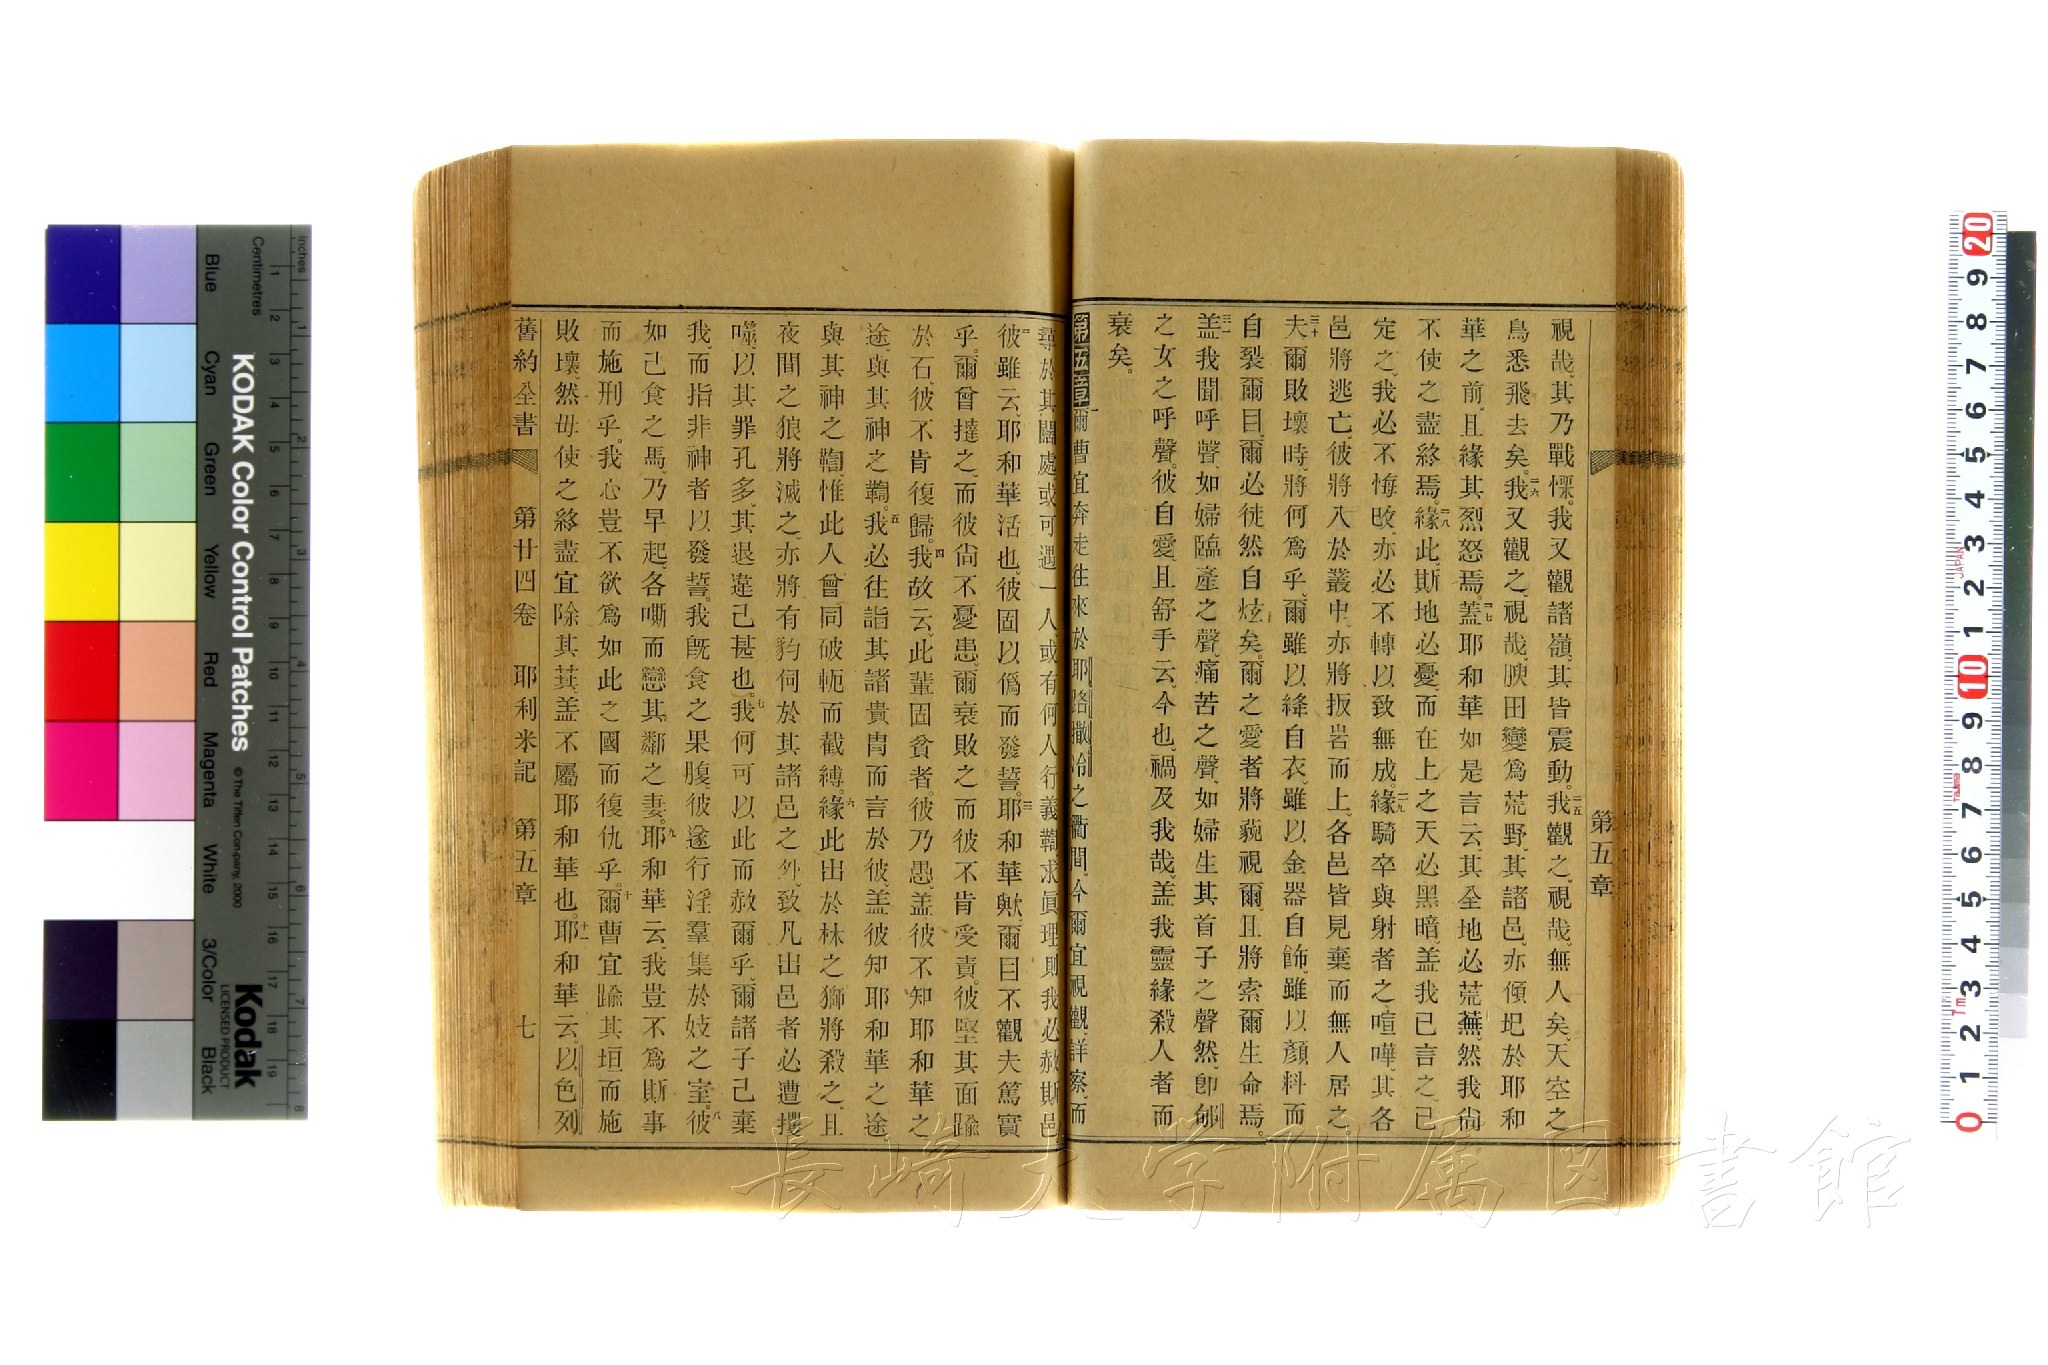 視哉、其乃戰慄。我又觀諸嶺、其皆震動。二五我觀之、視哉、無人矣、天空之
鳥悉飛去矣。二六我又觀之、視哉、腴田變爲荒野、其諸邑、亦傾圯於耶和
華之前、且緣其烈怒焉。二七蓋耶和華如是言云、其全地必荒蕪、然我尙
不使之盡終焉。二八緣此、斯地必憂、而在上之天必黑暗、盖我已言之、已
定之、我必不悔改、亦必不轉以致無成。二九緣騎卒與射者之喧嘩、其各
邑將逃亡、彼將入於叢中、亦將扳岩而上、各邑皆見棄而無人居之。
三十夫爾敗壞時、將何爲乎、爾雖以絳自衣、雖以金器自飾、雖以顏料而
自裂爾目、爾必徒然自炫矣。爾之愛者將藐視爾、且將索爾生命焉。
三一盖我聞呼聲、如婦臨產之聲、痛苦之聲、如婦生其首子之聲然、卽郇
之女之呼聲。彼自愛、且舒手云、今也、禍及我哉、盖我靈緣殺人者而
衰矣。
第五章一爾曹宜奔走往來於耶路撒冷之衢間、今爾宜視觀、詳察、而
尋於其闊處、或可遇一人、或有何人行義鞫求眞理、則我必赦斯邑
二彼雖云、耶和華活也、彼固以僞而發誓。三耶和華歟、爾目不觀夫篤實
乎。爾曾撻之、而彼尙不憂患、爾衰敗之而彼不肯受責。彼堅其面踰
於石、彼不肯復歸。四我故云、此輩固貧者。彼乃愚、盖彼不知耶和華之
途、與其神之鞫。五我必往詣其諸貴冑而言於彼、盖彼知耶和華之途
與其神之鞫、惟此人曾同破軛而截縛。六緣此出於林之獅將殺之、且
夜間之狼將滅之。亦將有豹伺於其諸邑之外、致凡出邑者必遭攫
噬、以其罪孔多、其退違已甚也。七我何可以此而赦爾乎、爾諸子已棄
我、而指非神者以發誓。我旣食之果腹、彼遂行淫羣集於妓之室。八彼
如已食之馬、乃早起、各嘶而戀其鄰之妻。九耶和華云、我豈不爲斯事
而施刑乎。我心豈不欲爲如此之國而復仇乎。十爾曹宜踰其垣而施
敗壞、然毋使之終盡宜除其基、盖不屬耶和華也。十一耶和華云、以色列
舊約全書 第廿四卷 耶利米記 第五章 七
第五章
長崎大学附属図書館
KODAK Color Control Patches
© The Tiffen Company, 2000
Kodak
LICENSED PRODUCT
Inches
Centimetres
Blue
Cyan
Green
Yellow
Red
Magenta
White
3/Color
Black
JAPAN